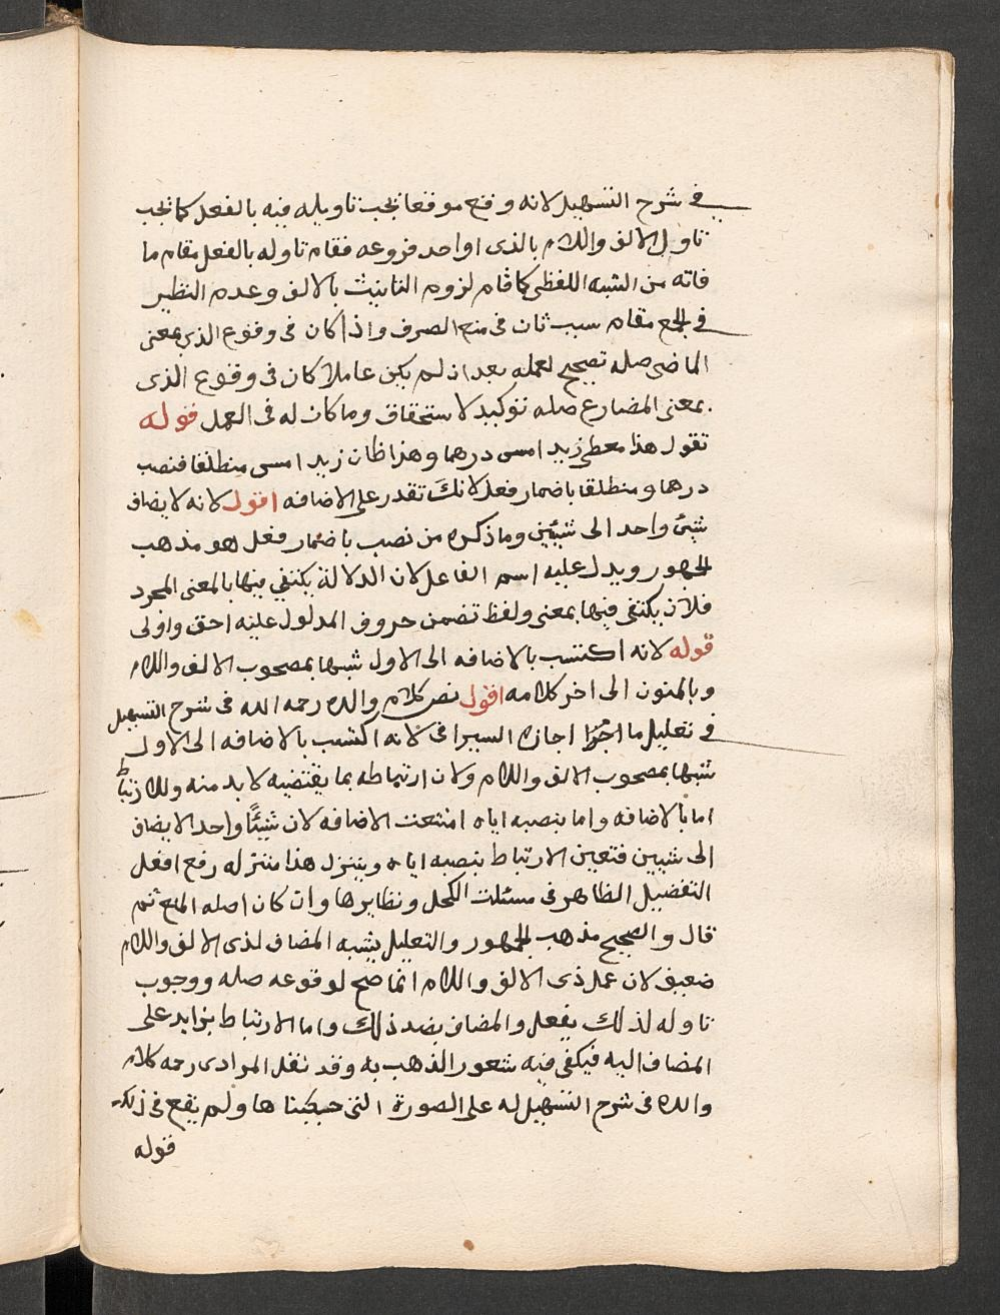 في شرح التسهيل لانه وقع موقعا يجب تاويله فيه بالفعل كما يجب
تاول الالف واللام بالذى او احد فروعه فقام تاوله بالفعل مقام ما
فاته من الشبه اللفظى كما قام لزوم التانيث بالالف وعدم النظير
في الجمع مقام سبب ثان فى منع الصرف واذا كان فى وقوع الذى بمعنى
الماضى صله تصحيح لعمله بعد ان لم يكن عاملا كان فى وقوع الذى
بمعنى المضارع صله توكيد لاستحقاق وما كان له فى العمل قوله
تقول هذا معطى زيد امس درهما وهذا ظان زيد امس منطلقا فنصب
درهما ومنطلقا باضمار فعل لانك تقدر على الاضافه اقول لانه لا يضاف
شيئ واحد الى شيئين وما ذكره من نصب باضمار فعل هو مذهب
الجمهور ويدل عليه اسم الفاعل لان الدلالة يكتفي فيها بالمعنى المجرد
فلان يكتفى فيها بمعنى ولفظ تضمن حروف المدلول عليه احق واولى
قوله لانه اكتسب بالاضافه الى الاول شبها بمصحوب الالف واللام
وبالمنون الى اخر كلامه اقول نص كلام والده رحمه الله فى شرح التسهيل
في تعليل ما اجازه السيرافى لانه اكتسب بالاضافه الى الاول
شبها بمصحوب الالف واللام ولان ارتباطه بما يقتضيه لا بد منه وللارتباط
اما بالاضافه واما بنصبه اياه امتنعت الاضافه لان شيئًا واحد الا يضاف
الى شيين فتعين الارتباط بنصبه اياه ويتنزل هذا منزله رفع افعل
التفضيل الظاهر فى مسئلت الكحل ونظايرها وان كان اصله المنع ثم
قال والصحيح مذهب الجمهور والتعليل بشبه المضاف لذى الالف واللام
ضعيف لان عمل ذى الالف واللام انما صح لوقوعه صله ووجوب
تاوله لذلك بفعل والمضاف بضد ذلك واما الارتباط بزايد على
المضاف اليه فيكفى فيه شعور الذهب به وقد نقل المرادى رحمه كلام
والده فى شرح التسهيل له على الصورة التى حيكينا ها ولم يقع فى ذلك
قوله